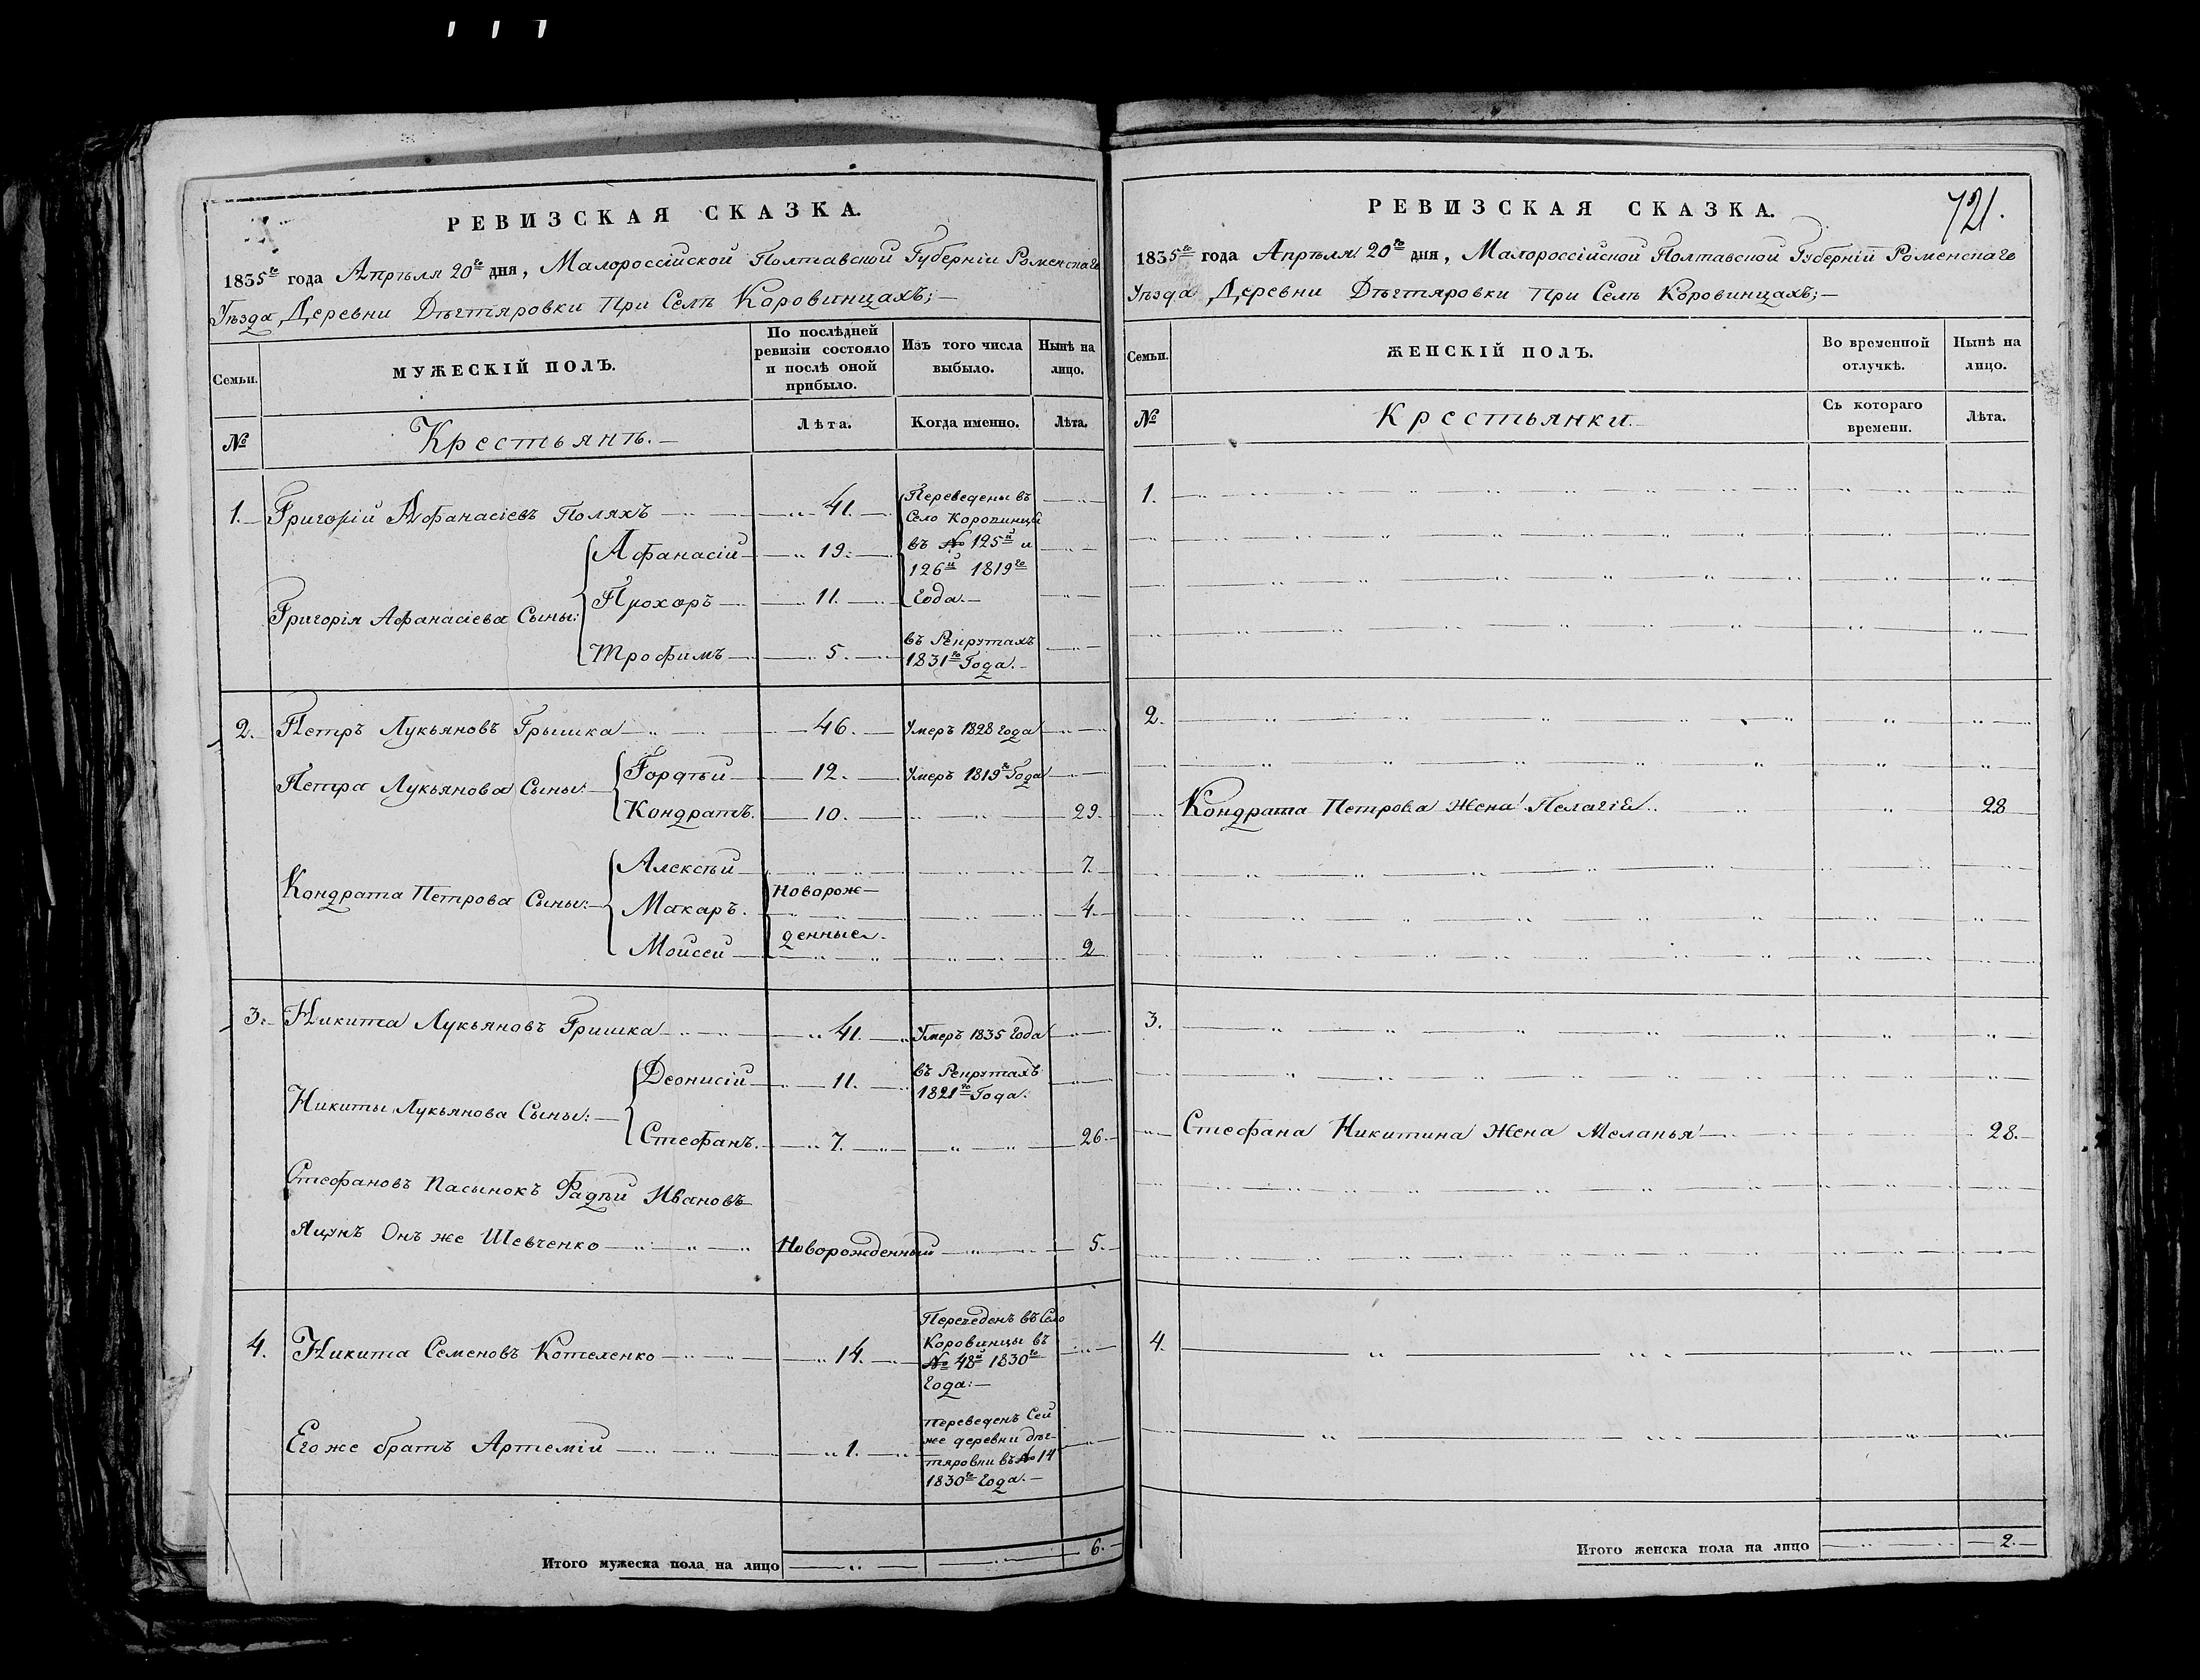 РЕВИЗСКАЯ СКАЗКА.
1835го года Апрѣля 20го дня, Малороссійской Полтавской Губерніи Роменскаго
Уѣзда Деревни Дѣгтяровки при Селѣ Коровинцахъ;—
Семьи.
МУЖЕСКІЙ ПОЛЪ.
По послѣдней ревизіи состояло и послѣ оной прибыло.
Изъ того числа выбыло.
Нынѣ на лицо.
№
Крестьянъ.—
Лѣта.
Когда именно.
Лѣта.
1. Григорій Афанасіевъ Поляхъ 41. Переведены въ Село Коровинцы въ № 125й и 126й 1819го Года.—
Григорія Афанасіева Сыны:
Афанасій 19.
Прохоръ 11.
Трофимъ 5. въ Рекрутахъ 1831го Года.—
2. Петръ Лукьяновъ Грышка 46. Умеръ 1828 года
Петра Лукьянова Сыны:
Гордѣй 12. Умеръ 1819го Года
Кондратъ. 10. 29.
Кондрата Петрова Сыны:
Алексѣй 7.
Новорож-
Макаръ. 4.
денные.
Моисей 2
3. Никита Лукьяновъ Гришка 41. Умеръ 1835 Года
Никиты Лукьянова Сыны:
Деонисій 11. въ Рекрутахъ 1821го Года.
Стефанъ. 7. 26.
Стефановъ Пасынокъ Фадѣй Ивановъ
Яцунъ Онъ же Шевченко Новорожденный 5.
4. Никита Семеновъ Котеленко 14. Переведенъ въ Село Коровинцы въ № 48й 1830го Года:—
Его же братъ Артемій 1. Переведенъ Сей же деревни Дѣгтяровки въ № 14 1830го Года.—
Итого мужеска пола на лицо 6.
РЕВИЗСКАЯ СКАЗКА.
721.
1835го года Апрѣля 20го дня, Малороссійской Полтавской Губерній Роменскаго
Уѣзда Деревни Дѣгтяровки при Селѣ Коровинцахъ;—
Семьи.
ЖЕНСКІЙ ПОЛЪ.
Во временной отлучкѣ.
Нынѣ на лицо.
№
Крестьянки.
Съ котораго времени.
Лѣта.
1.
2.
Кондрата Петрова Жена Пелагія 28
3.
Стефана Никитина Жена Меланья 28.
4.
Итого женска пола на лицо 2.